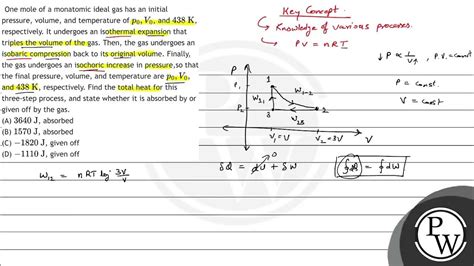 One mole of a monatomic ideal gas has an initial
pressure, volume, and temperature of p₀, V₀, and 438 K,
respectively. It undergoes an isothermal expansion that
triples the volume of the gas. Then, the gas undergoes an
isobaric compression back to its original volume. Finally,
the gas undergoes an isochoric increase in pressure, so that
the final pressure, volume, and temperature are p₀, V₀,
and 438 K, respectively. Find the total heat for this
three-step process, and state whether it is absorbed by or
given off by the gas.
(A) 3640 J, absorbed
(B) 1570 J, absorbed
(C) −1820 J, given off
(D) −1110 J, given off
W₁₂ = nRT log 3V/V
Key Concept:
Knowledge of various processes.
PV = nRT
↓ P ∝ 1/V↑, P.V. = Const
P = Const.
V = Const
P
P₁
P₂
1
2
3
W₃₁
W₁₋₂
W₂₃
V₁ = V
V₂ = 3V
V
δQ = dU + δW
0
∮dQ = ∮dW
PW